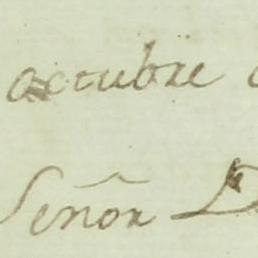 octubre
Señor D